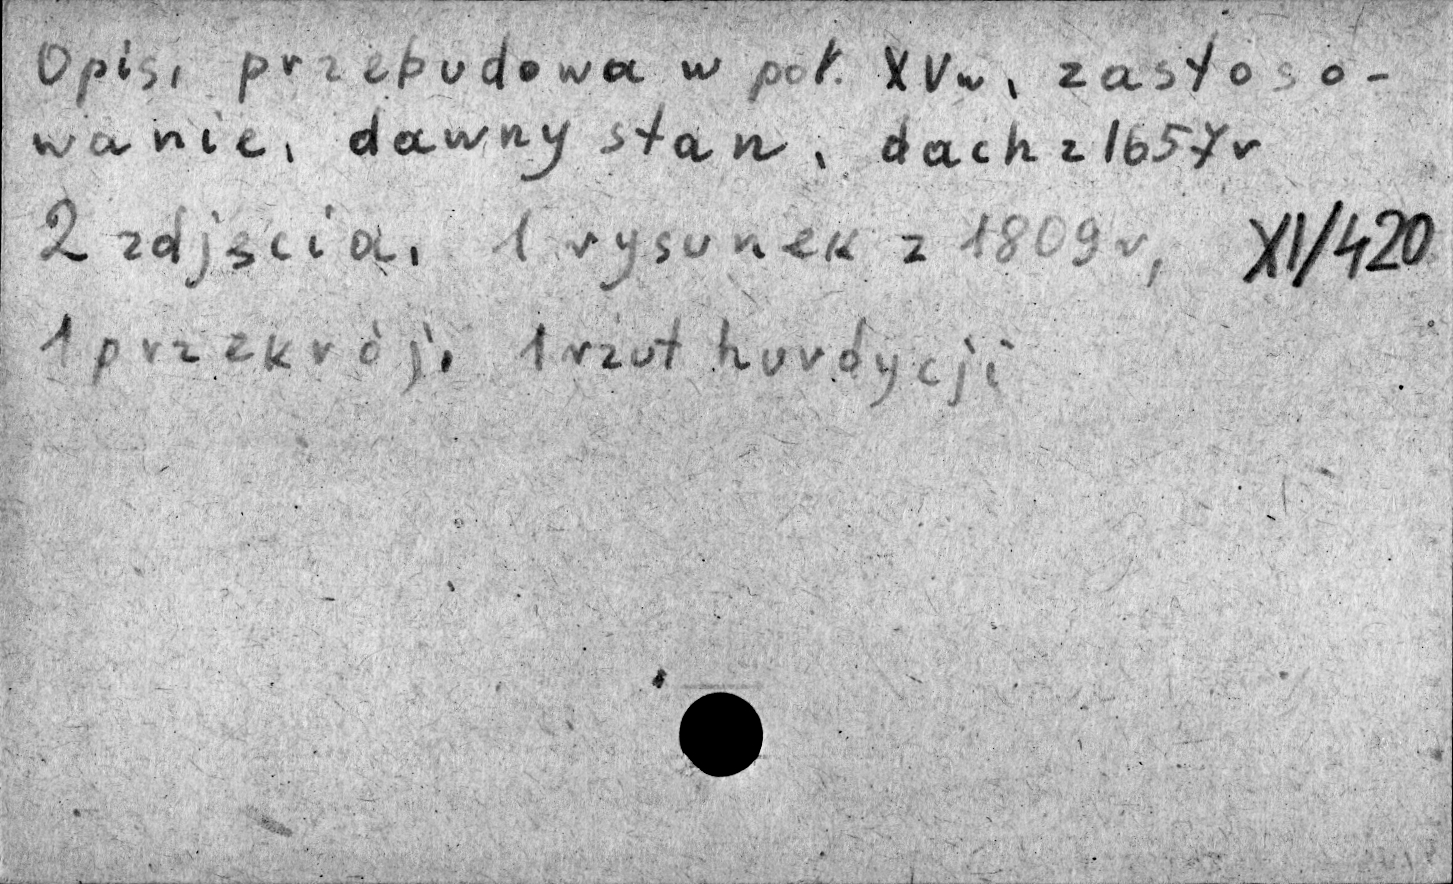 Opis, przebudowa w poł. XVw, zastoso-
wanie, dawny stan, dach z 1657r
2 zdjęcia, 1 rysunek z 1809r, XI/420
1 przekrój, 1 rzut hurdycji